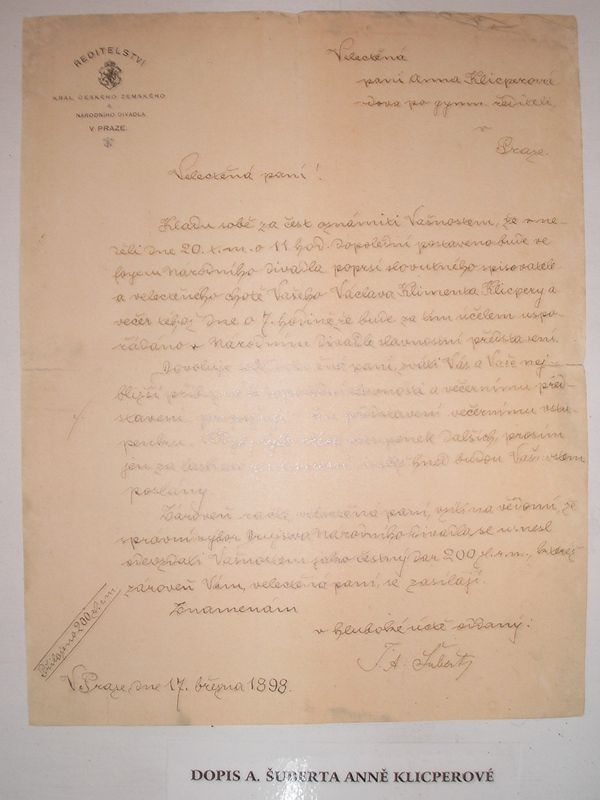 ŘEDITELSTVÍ
KRÁL. ČESKÉHO ZEMSKÉHO
A
NÁRODNÍHO DIVADLA
V PRAZE.
Velectěná
paní Anna Klicperová
vdova po gymn. řediteli
v
Praze.
Velectěná paní!
Kladu sobě za čest oznámiti Vašnostem, že v ne-
děli dne 20. t. m. o 11. hod. dopolední postaveno bude ve
foyeru Národního divadla poprsí slovutného spisovatele
a velectěného chotě Vašeho Václava Klimenta Klicpery a
večer téhož dne o 7. hodině že bude za tím účelem uspo-
řádáno v Národním divadle slavnostní představení.
Dovoluji paní, zváti Vás a Vaše nej-
bližší slavnosti a večernímu před-
stavení večernímu
dalších, prosím
jen za hned budou Vašnostem
poslány.
Zároveň račte, velectěná paní, vzíti na vědomí, že
správní výbor Družstva Národního divadla se usnesl
odevzdati Vašnostem jako čestný dar 200 zl. r. m., kteréž
zároveň Vám, velectěná paní, se zasílají.
Znamenám
v hluboké úctě oddaný:
F. A. Šubert
Přiloženo 200 zl.
V Praze, dne 17. března 1898.
DOPIS A. ŠUBERTA ANNĚ KLICPEROVÉ